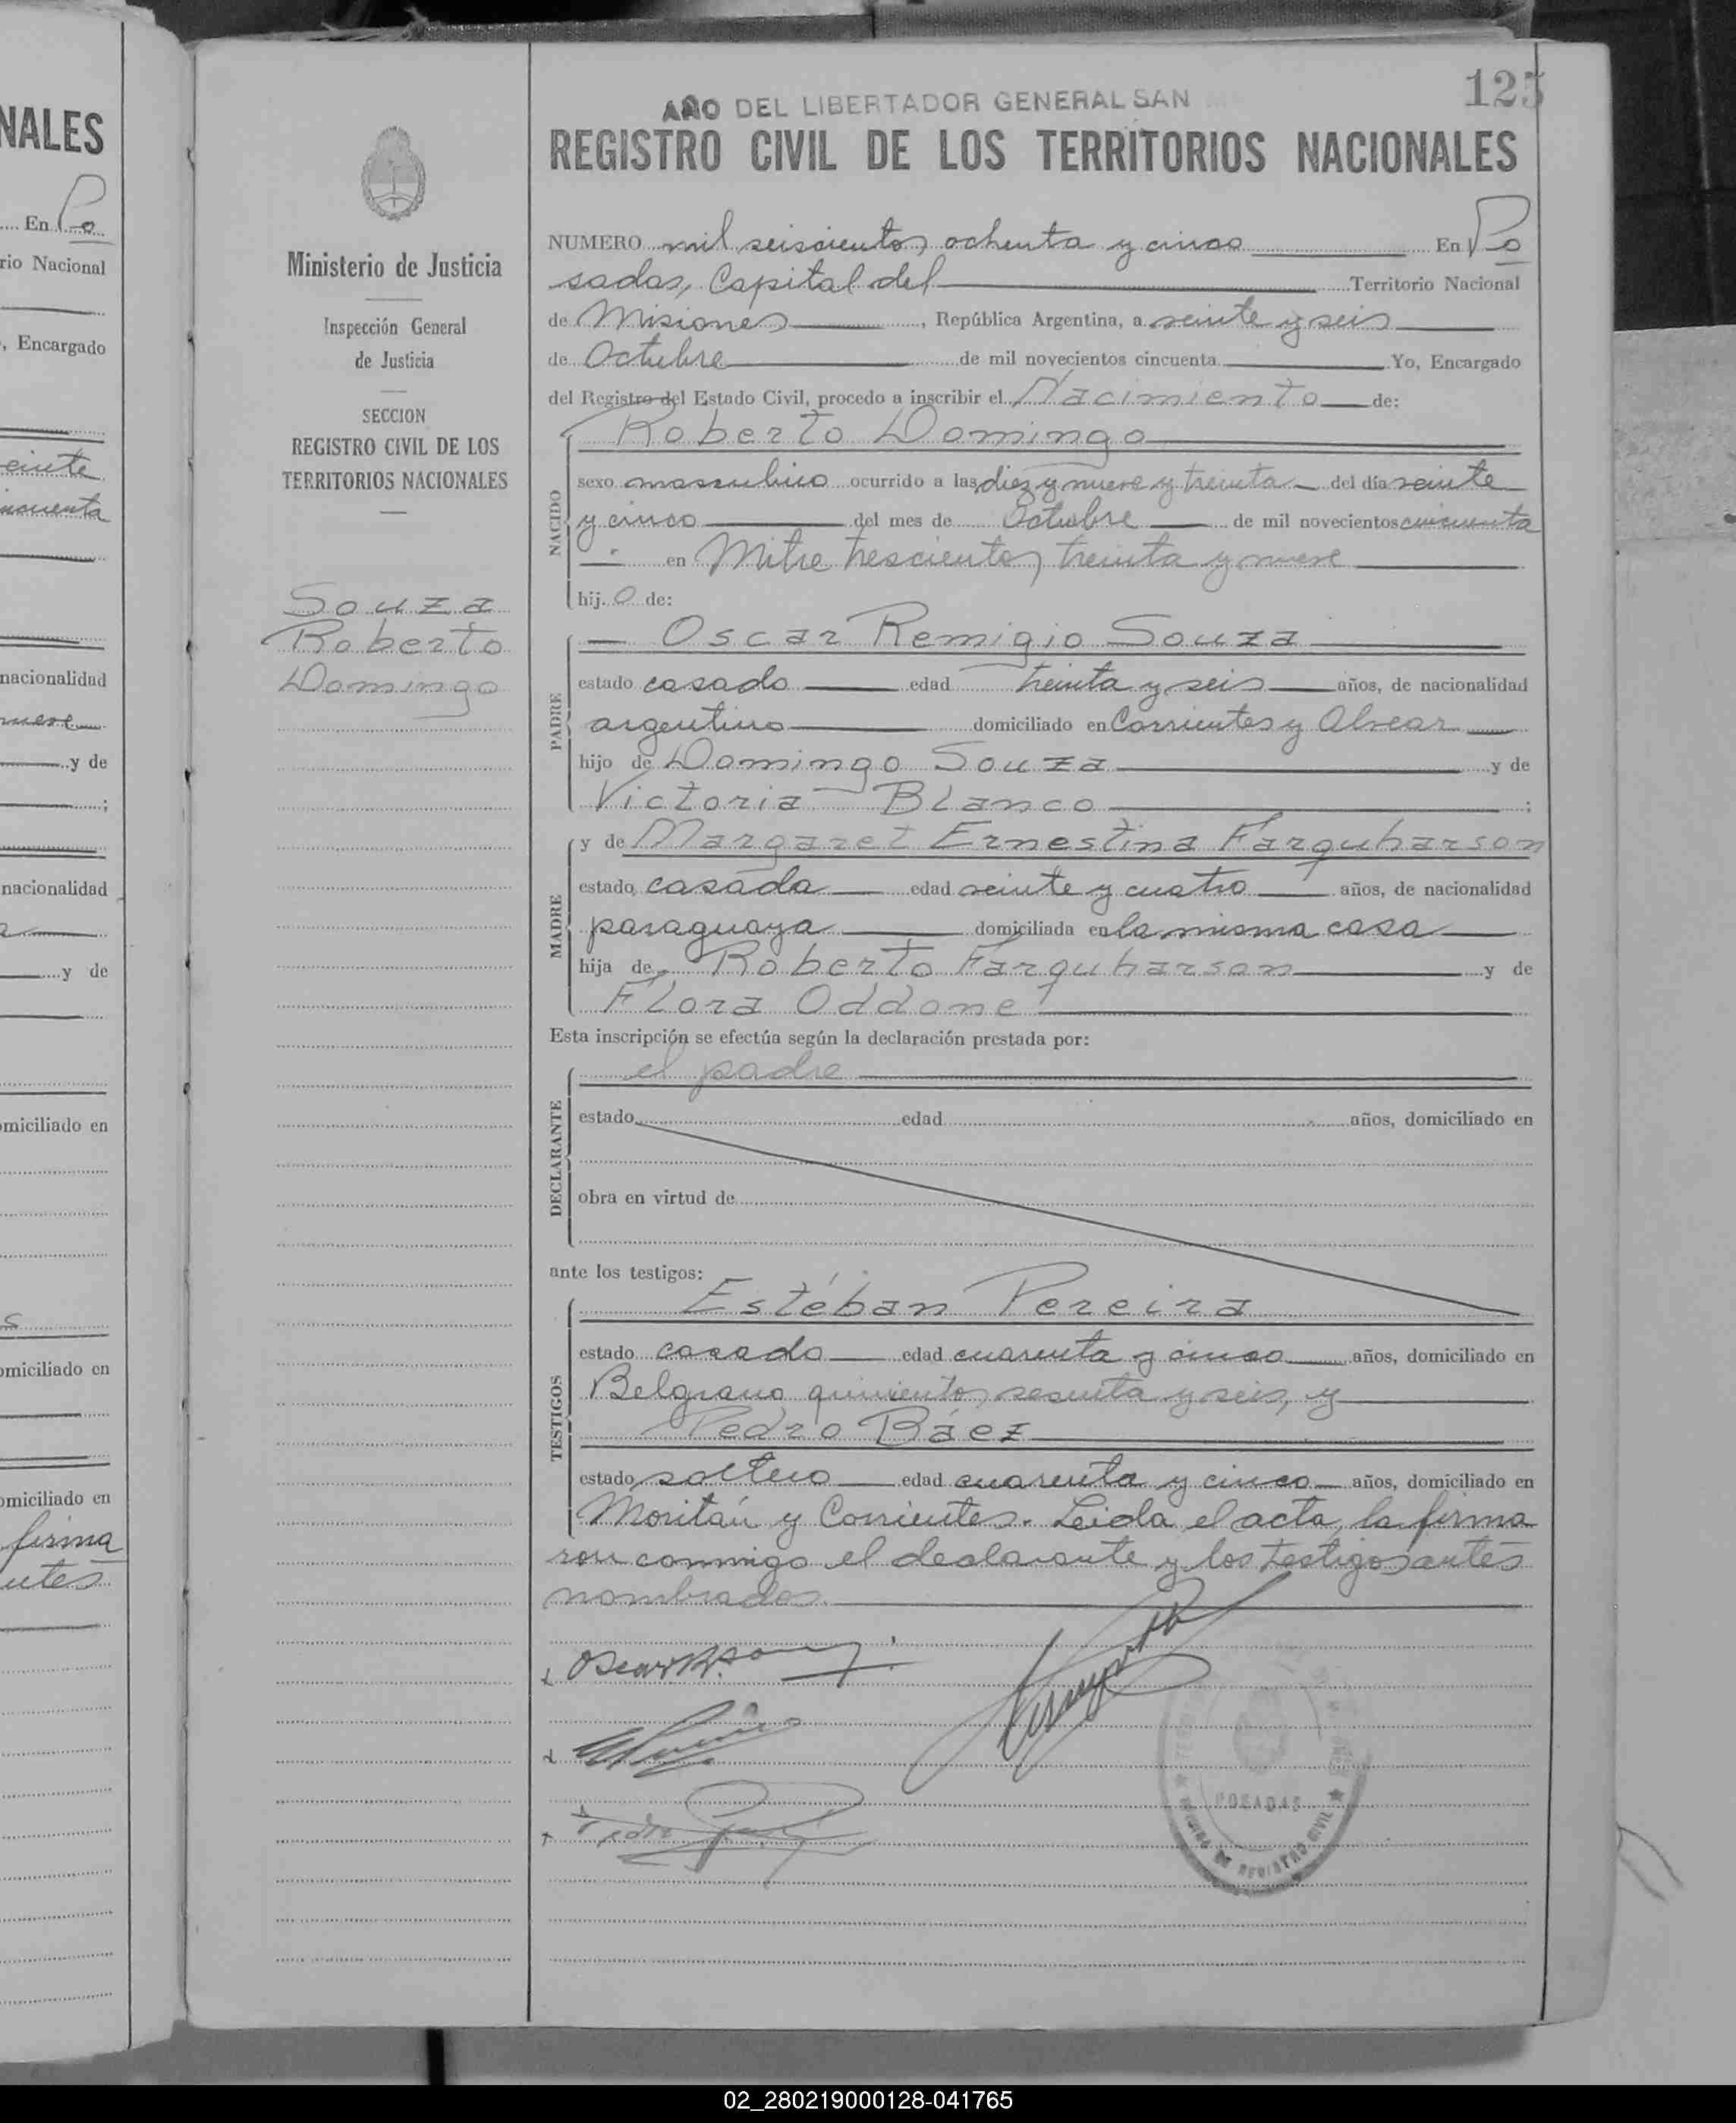 NALES
En Po
rio Nacional
, Encargado
einte
ncuenta
nacionalidad
nueve
y de
;
nacionalidad
y de
omiciliado en
s
omiciliado en
omiciliado en
firma
ntes
125
AÑO DEL LIBERTADOR GENERAL SAN
REGISTRO CIVIL DE LOS TERRITORIOS NACIONALES
Ministerio de Justicia
Inspección General
de Justicia
SECCION
REGISTRO CIVIL DE LOS
TERRITORIOS NACIONALES
Souza
Roberto
Domingo
NUMERO mil seiscientos ochenta y cinco En Po
sadas, Capital del Territorio Nacional
de Misiones, República Argentina, a veinte y seis
de Octubre de mil novecientos cincuenta Yo, Encargado
del Registro del Estado Civil, procedo a inscribir el Nacimiento de:
NACIDO
Roberto Domingo
sexo masculino ocurrido a las diez y nueve y treinta del día veinte
y cinco del mes de Octubre de mil novecientos cincuenta
en Mitre trescientos treinta y nueve
hij o de:
PADRE
Oscar Remigio Souza
estado casado edad treinta y seis años, de nacionalidad
argentino domiciliado en Corrientes y Alvear
hijo de Domingo Souza y de
Victoria Blanco ;
MADRE
y de Margaret Ernestina Farquharson
estado casada edad veinte y cuatro años, de nacionalidad
paraguaya domiciliada en la misma casa
hija de Roberto Farquharson y de
Flora Oddone
Esta inscripción se efectúa según la declaración prestada por:
DECLARANTE
el padre
estado edad años, domiciliado en
obra en virtud de
ante los testigos:
TESTIGOS
Estéban Pereira
estado casado edad cuarenta y cinco años, domiciliado en
Belgrano quinientos sesenta y seis, y
Pedro Báez
estado soltero edad cuarenta y cinco años, domiciliado en
Moritán y Corrientes. Leida el acta, la firma
ron conmigo el declarante y los testigos antes
nombrados.
POSADAS
REGISTRO CIVIL
02_280219000128-041765